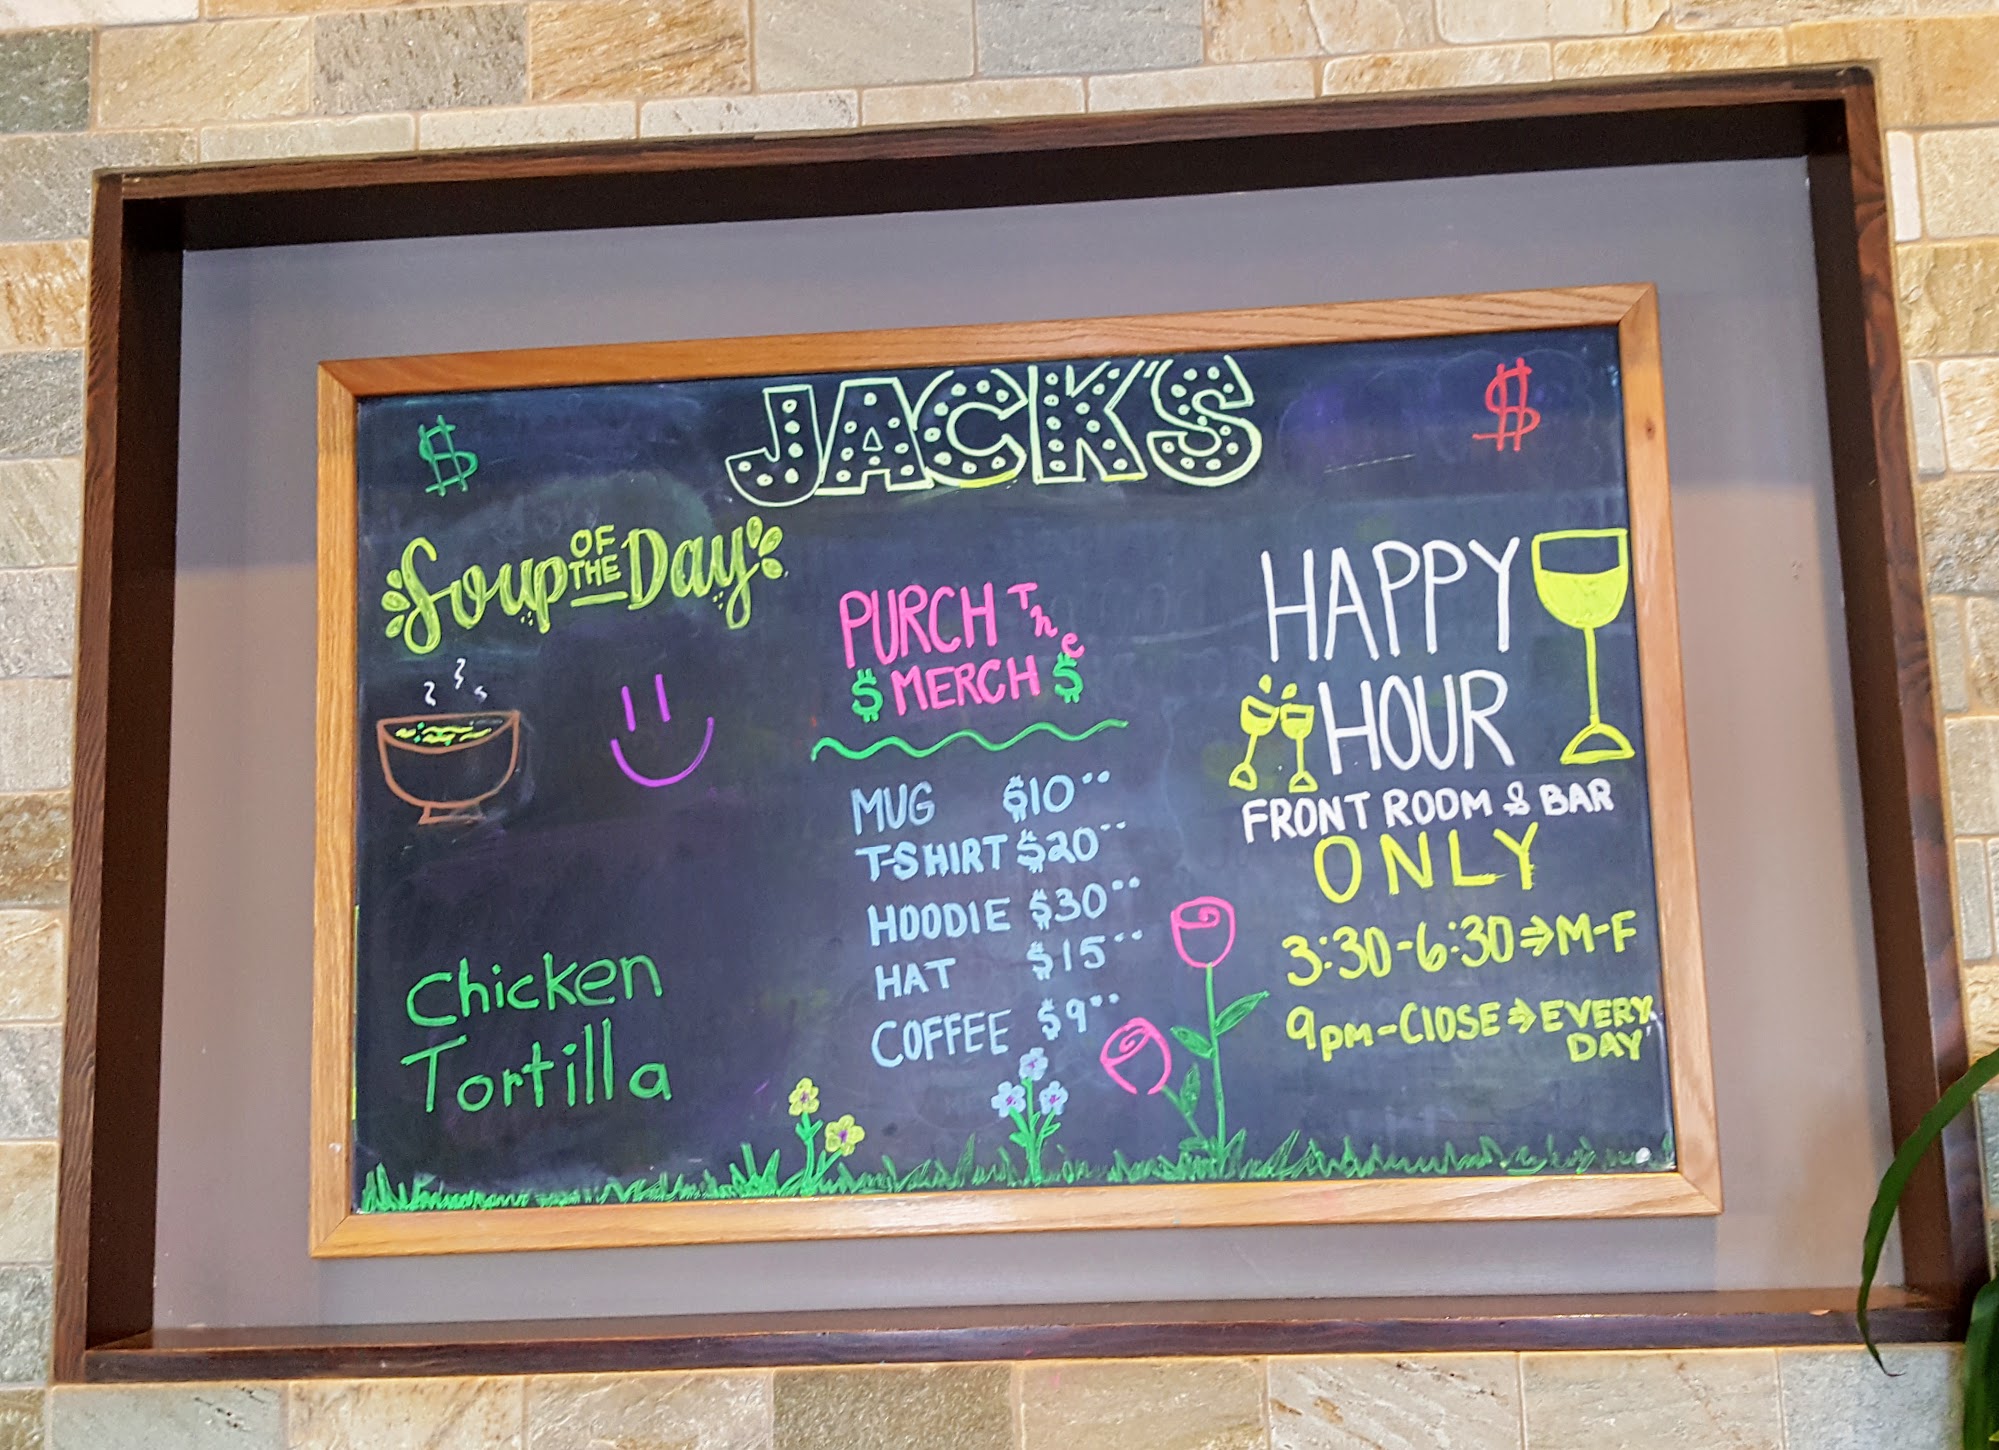 $
JACK'S
$
Soup OF THE Day
Chicken
Tortilla
PURCH The
$ MERCH $
MUG $10
T-SHIRT $20
HOODIE $30
HAT $15
COFFEE $9
HAPPY
HOUR
FRONT ROOM & BAR
ONLY
3:30-6:30⇒M-F
9PM-ClOSE⇒EVERY
DAY